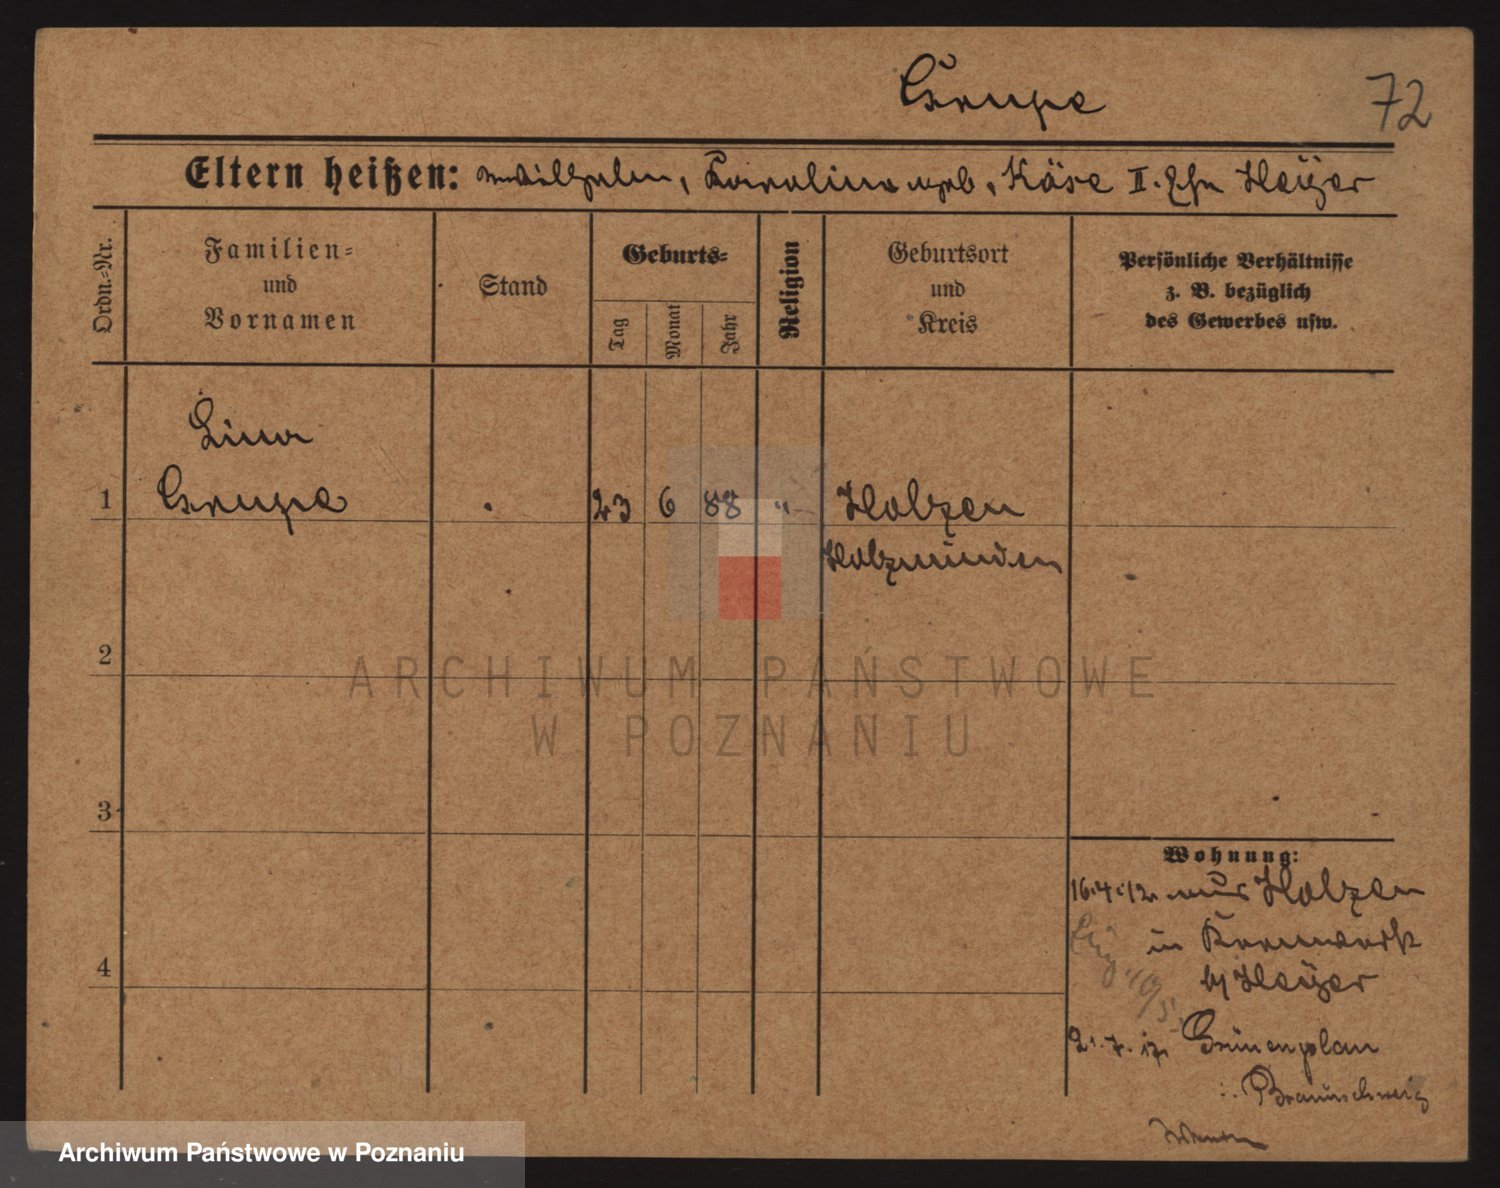 Grupe
72
Eltern heißen: Wilhelm, Karoline geb. Käse II. Ehe Heyer
Ordn.-Nr.
Familien-
und
Vornamen
Stand
Geburts-
Tag
Monat
Jahr
Religion
Geburtsort
und
Kreis
Persönliche Verhältnisse
z. B. bezüglich
des Gewerbes usw.
Lina
1 Grupe 23 6 88 " Holzen
Holzminden
2
ARCHIWUM PAŃSTWOWE
W POZNANIU
3
Wohnung:
16.4.12. aus Holzen
in
4
b/ Heyer
21.7.12. Grünenplan
Braunschweig
Archiwum Państwowe w Poznaniu